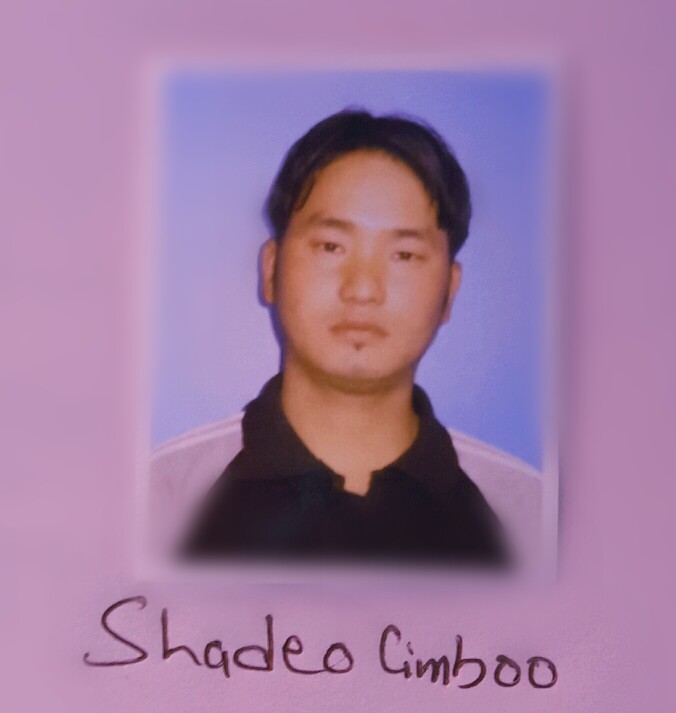 Shadeo Cimboo